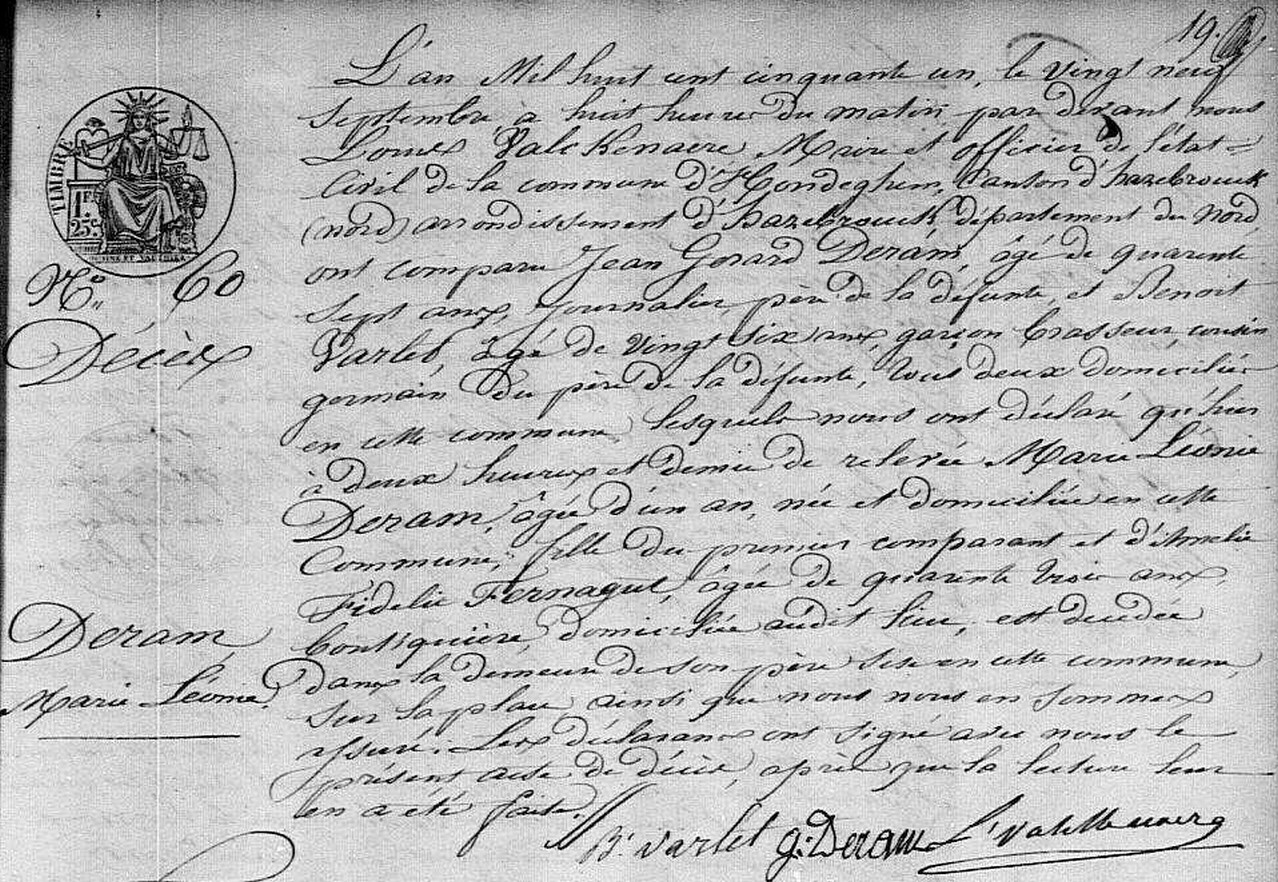 19.
L'an Mil huit cent cinquante un, le vingt neuf
Septembre, à huit heures du matin, par devant nous
Louis Valckenaere, Maire et officier de l'état=
Civil de la commune d'Hondeghem, Canton d'hazebrouck
(nord) arrondissement d'hazebrouck, département du Nord
ont comparu Jean Gérard Deram, âgé de quarante
Sept ans, journalier, père de la défunte, et Benoit
Varlet, âgé de vingt six ans, garçon brasseur, cousin
germain du père de la défunte, tous deux domiciliés
en cette commune, lesquels nous ont déclaré qu'hier
à deux heures et demie de relevée Marie Léonie
Deram, âgée d'un an, née et domiciliée en cette
Commune, fille du premier comparant et d'Amelie
Fidelie Fernagut, âgée de quarante trois ans,
boutiquière, domiciliée audit lieu, est decedée
dans la demeure de son père sise en cette commune,
sur la place ainsi que nous nous en sommes
assuré. Les déclarans ont signé avec nous le
présent acte de décès, après que la lecture leur
en a été faite.
TIMBRE
1F
25C
No. 60
Décès
Deram,
Marie Léonie.
Bt varlet g. Deram Ls Valckenaere